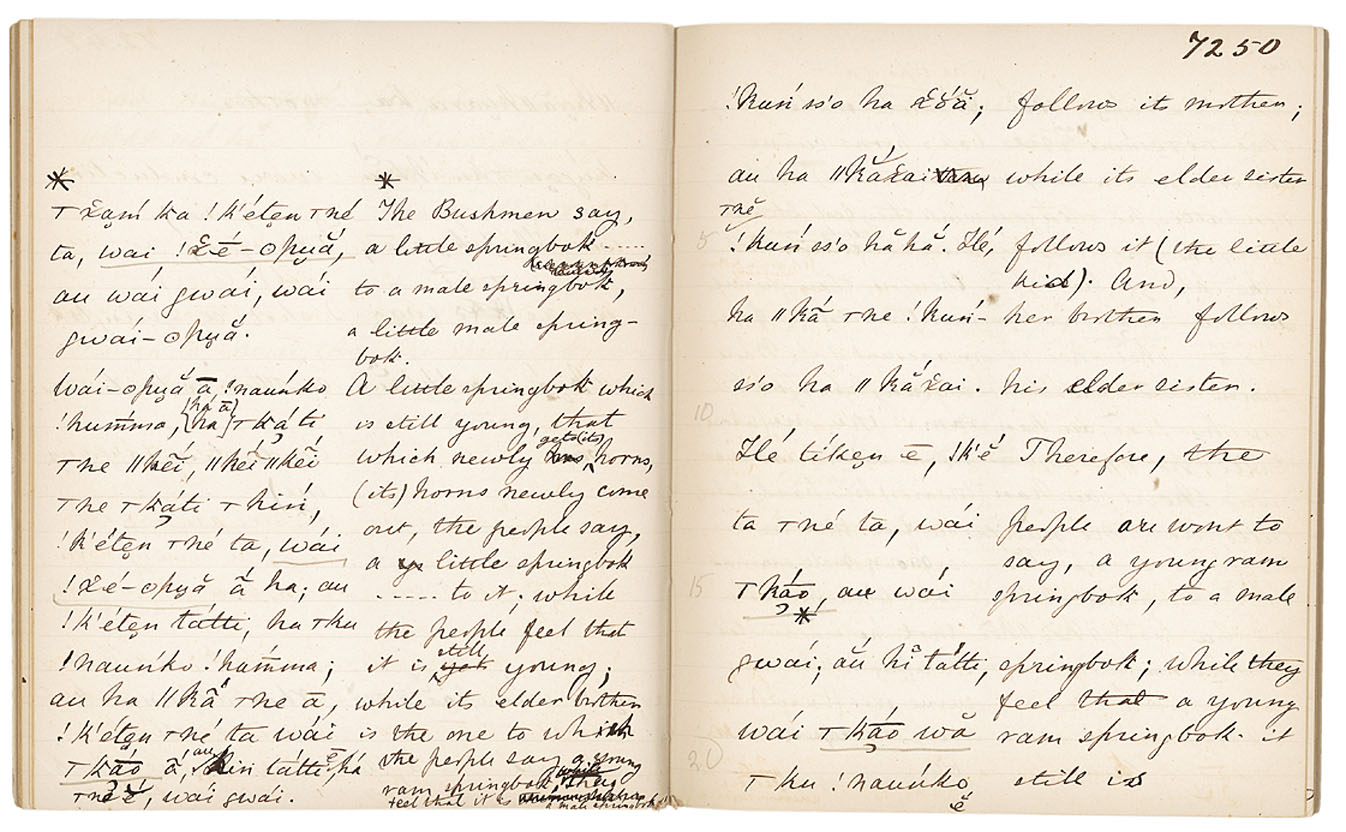 7250
*
Τ χaḿ ka !k'éten Τné
ta, wai !χé-ʘpuă,
au wái gwái, wái
gwái-ʘpuă.
Wái-ʘpuă ā, !nauńko
!huḿma, {ha ā} {ha} Τkáti
Τne ǁkēĭ, ǁkēĭ ǁkēĭ
Τne Τkáti Τhiń,
!k'éten Τné ta, wái
!χé-ʘpuă ā̆ ha; au
!k'éten tátti, ha Τku
!nauńko !huḿma;
au ha ǁkā̆ Τne ā,
!k'éten Τné ta wái
Τkáo ā̆, au tátti, há
Τné é, wái gwái.
*
The Bushmen say,
a little springbok ......
to a male springbok,
a little male spring-
bok.
A little springbok which
is still young, that
which newly gets (its) horns,
(its) horns newly come
out, the people say,
a little springbok
...... to it; while
the people feel that
it is still young;
while its elder brother
is the one to which
the people say a young
ram springbok, they
feel that it is a male springbok
!kuń sś'o ha χóă; follows its mother;
au ha ǁkā́χai while its elder sister
Τnĕ
5 !kuń sś'o hăhă. Hé, follows it (the little
kid). And,
ha ǁkā̆ Τne !kuń- her brother follows
sś'o ha ǁkăχai. his elder sister.
10
Hé tíken ē, !k'ĕ Therefore, the
ta Τné ta, wái people are wont to
say, a young ram
15 Τkáo, au wái springbok, to a male
*
gwái; au hĭ tátti, springbok; while they
feel that a young
wái Τkáo wă ram springbok it
20
Τku !nauńko still is
ĕ